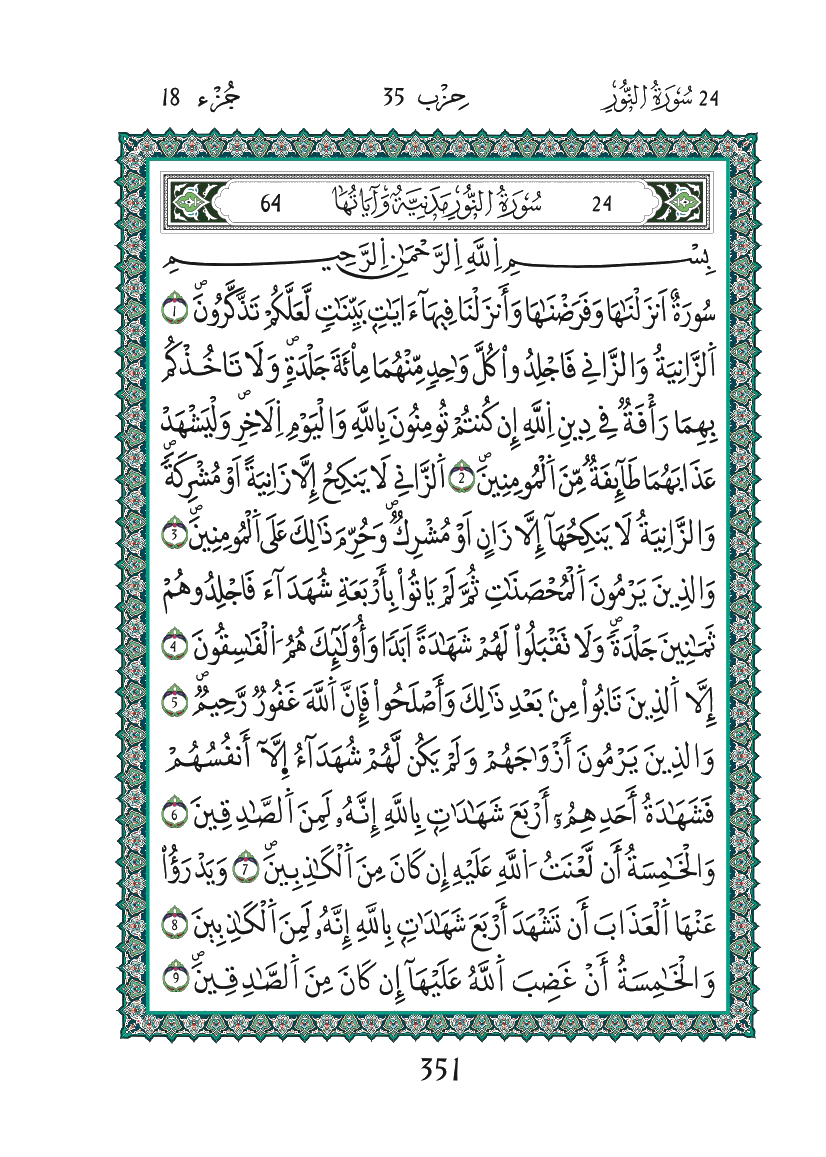 24 سُورَةُ النُّورِ حِزْب 35 جُزْء 18
24 سُورَةُ النُّورِ مَدَنِيَّةٌ وَءَايَاتُهَا 64
بِسْمِ اِ۬للَّهِ اِ۬لرَّحْمَٰنِ اِ۬لرَّحِيمِ
سُورَةٌ اَنزَلْنَٰهَا وَفَرَضْنَٰهَا وَأَنزَلْنَا فِيهَآ ءَايَٰتِۢ بَيِّنَٰتٖ لَّعَلَّكُمْ تَذَّكَّرُونَۖ 1
اَ۬لزَّانِيَةُ وَالزَّانِے فَاجْلِدُواْ كُلَّ وَٰحِدٖ مِّنْهُمَا مِاْئَةَ جَلْدَةٖۖ وَلَا تَاخُذْكُم
بِهِمَا رَأْفَةٞ فِے دِينِ اِ۬للَّهِ إِن كُنتُمْ تُومِنُونَ بِاللَّهِ وَالْيَوْمِ اِ۬لَاخِرِۖ وَلْيَشْهَدْ
عَذَابَهُمَا طَآئِفَةٞ مِّنَ اَ۬لْمُومِنِينَۖ 2 اَ۬لزَّانِے لَا يَنكِحُ إِلَّا زَانِيَةً اَوْ مُشْرِكَةٗۖ
وَالزَّانِيَةُ لَا يَنكِحُهَآ إِلَّا زَانٍ اَوْ مُشْرِكٞۖ وَحُرِّمَ ذَٰلِكَ عَلَى اَ۬لْمُومِنِينَۖ 3
وَالذِينَ يَرْمُونَ اَ۬لْمُحْصَنَٰتِ ثُمَّ لَمْ يَاتُواْ بِأَرْبَعَةِ شُهَدَآءَ فَاجْلِدُوهُمْ
ثَمَٰنِينَ جَلْدَةٗۖ وَلَا تَقْبَلُواْ لَهُمْ شَهَٰدَةً اَبَدٗا وَأُوْلَٰٓئِكَ هُمُ اُ۬لْفَٰسِقُونَ 4
إِلَّا اَ۬لذِينَ تَابُواْ مِنۢ بَعْدِ ذَٰلِكَ وَأَصْلَحُواْ فَإِنَّ اَ۬للَّهَ غَفُورٞ رَّحِيمٞۖ 5
وَالذِينَ يَرْمُونَ أَزْوَٰجَهُمْ وَلَمْ يَكُن لَّهُمْ شُهَدَآءُ اِ۪لَّآ أَنفُسُهُمْ
فَشَهَٰدَةُ أَحَدِهِمُۥٓ أَرْبَعَ شَهَٰدَٰتِۢ بِاللَّهِ إِنَّهُۥ لَمِنَ اَ۬لصَّٰدِقِينَ 6
وَالْخَٰمِسَةُ أَن لَّعْنَتُ اُ۬للَّهِ عَلَيْهِ إِن كَانَ مِنَ اَ۬لْكَٰذِبِينَۖ 7 وَيَدْرَؤُاْ
عَنْهَا اَ۬لْعَذَابَ أَن تَشْهَدَ أَرْبَعَ شَهَٰدَٰتِۢ بِاللَّهِ إِنَّهُۥ لَمِنَ اَ۬لْكَٰذِبِينَ 8
وَالْخَٰمِسَةُ أَنْ غَضِبَ اَ۬للَّهُ عَلَيْهَآ إِن كَانَ مِنَ اَ۬لصَّٰدِقِينَۖ 9
351